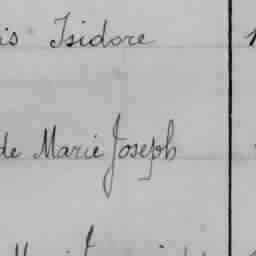 is Isidore
de Marie Joseph